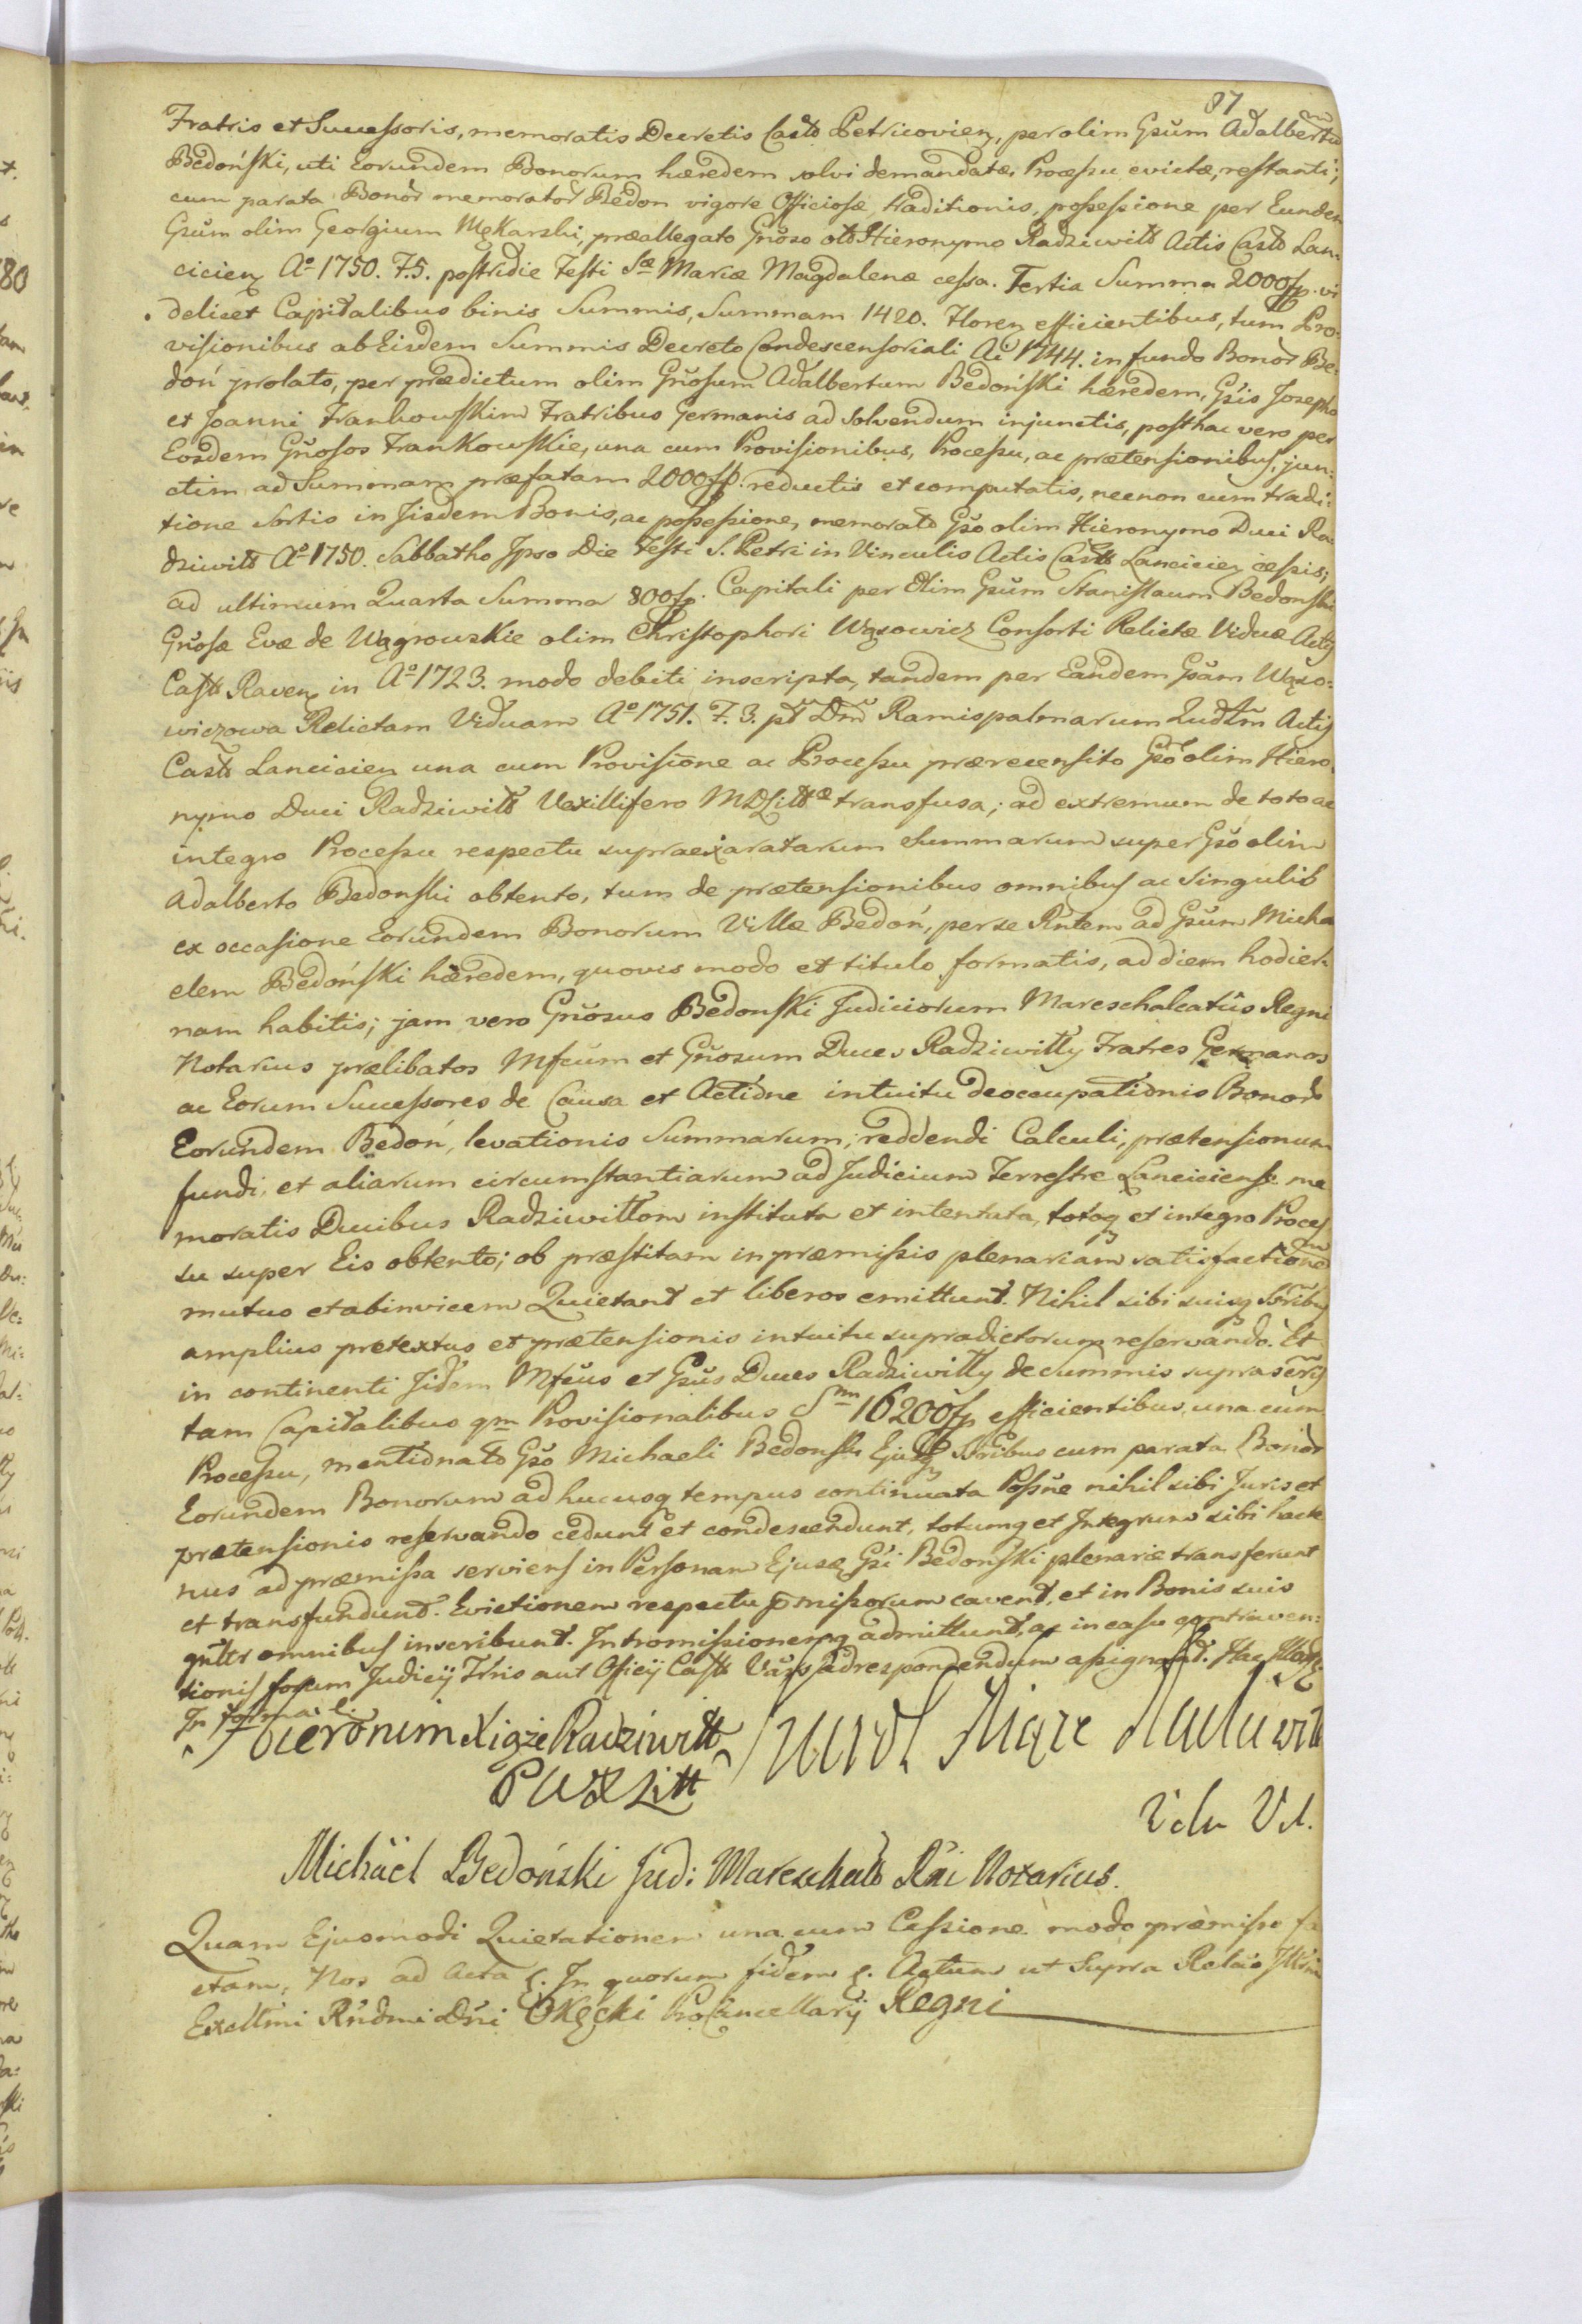 87
Fratris et Successoris, memoratis Decretis Castr Petricovien, per olim Gsum Adalbertum
Bedoński, uti Eorundem Bonorum hæredem solvi demandatæ, Processu evictæ, restanti;
cum parata Bonor memorator Bedon vigore Officiosæ traditionis, possessione per Eunden
Gsum olim Georgium Mękarski, præallegato Gnoso olo Hieronymo Radziwiłł Actis Castr Lan:
cicien Aº 1750. F. 5. postridie Festi Sæ Mariæ Magdalenæ cessa. Tertia Summa 2000 fp. vi
delicet Capitalibus binis Summis, Summam 1420. Floren efficientibus, tum Pro:
visionibus ab Eisdem Summis Decreto Condescensoriali Aº 1744. in fundo Bonor Be:
doń prolato, per prædictum olim Gnosum Adalbertum Bedoński hæredem, Gsis Josepho
et Joanni Frankowskim Fratribus Germanis ad solvendum injunctis, posthac vero per
Eosdem Gnosos Frankowskie, una cum Provisionibus, Processu, ac prætensionibus, jun:
ctim ad Summam præfatam 2000 fp. reductis et computatis, necnon cum tradi:
tione Sortis in Iisdem Bonis, ac possessione, memorato Gso olim Hieronymo Duci Ra
dziwiłł Aº 1750. Sabbatho Ipso Die Festi S. Petri in Vinculis Actis Castr Lancicien cessis;
ad ultimum Quarta Summa 800 fp. Capitali per Olim Gsum Stanislaum Bedonski
Gnosæ Evæ de Wągrowskie olim Christophori Wąsowicz Consorti Relictæ Viduæ Actis
Castr Raven in Aº 1723. modo debiti inscripta, tandem per Eandem Gsam Wąso:
wiczowa Relictam Viduam Aº 1751. F. 3. pt Dm Ramispalmarum Qudtm Actis
Castr Lancicien una cum Provisione ac Processu prærecensito Gso olim Hiero
nymo Duci Radziwiłł Vexillifero MDLittæ transfusa; ad extremum de toto ac
integro Processu respectu supraexaratarum Summarum super Gso olim
Adalberto Bedonski obtento, tum de prætensionibus omnibus ac singulis
ex occasione Eorundem Bonorum Villæ Bedoń, per se Rntem ad Gsum Micha
elem Bedoński hæredem, quovis modo et titulo formatis, ad diem hodier
nam habitis; jam vero Gnosus Bedonski Judiciorum Mareschalcatûs Regni
Notarius prælibatos Mfcum et Gnosum Duces Radziwiłły Fratres Germanos
ac Eorum Successores de Causa et Actione intuitu deoccupationis Bonor
Eorundem Bedoń, levationis Summarum, reddendi Calculi, prætensionum
fundi, et aliarum circumstantiarum ad Judicium Terrestre Lanciciense me
moratis Ducibus Radziwiłłom instituta et intentata, totoq et integro Proces
su super Eis obtento; ob præstitam in præmissis plenariam satisfactionem
mutuo et abinvicem Quietant et liberos emittunt. Nihil sibi suisq Sribus
amplius pretextus et prætensionis intuitu supradictorum reservando. Et
in continenti Iidem Mfcus et Gsus Duces Radziwiłły de Summis suprascrip
tam Capitalibus qm Provisionalibus Smm 16200 fp efficientibus, una cum
Processu, mentionato Gso Michaeli Bedonski Ejusq Sribus cum parata Bonor
Eorundem Bonorum ad hucusq tempus continuata Possne nihil sibi Juris et
prætensionis reservando cedunt et condescendunt, totumq et Integrum sibi hacte
nus ad præmissa serviens in Personam Ejusdq Gsi Bedoński plenarie transferunt
et transfundunt. Evictionem respectu pmissorum cavent, et in Bonis suis
gnltr omnibus inscribunt. Intromissionemq admittunt, ac in casu contraven:
tionis forum Judicij Trris aut Officij Castr Varss ad respondendum assignant.
In forma
Hieronim Xiąże Radziwiłł
Xiąże Radziwiłł
P W X Litt
Michäel Bedoński Jud: Mareschalc Rni Notarius.
Quam Ejusmodi Quietationem una cum Cessione modo præmisso fa
ctam, Nos ad Acta &. In quorum fidem &. Actum ut Supra Relaio Illrmi
Excellmi Rndmi Dni Okęcki ProCancellarij Regni